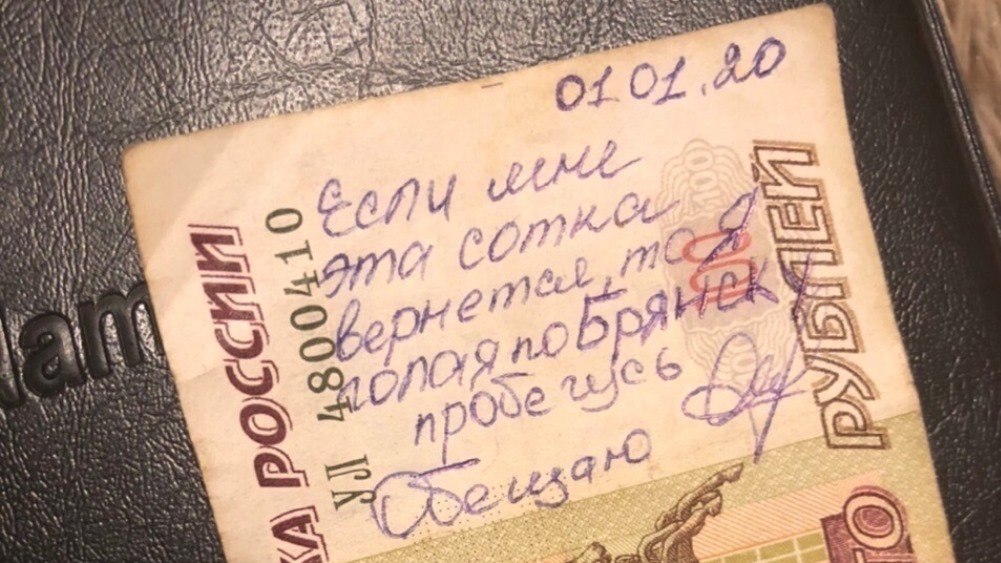 01.01.20
Если мне
эта сотка
вернется, то я
голая по Брянску
пробегусь
Обещаю
УЛ 4800410
КА РОССИИ
100
РУБЛЕЙ
Nam
ТО